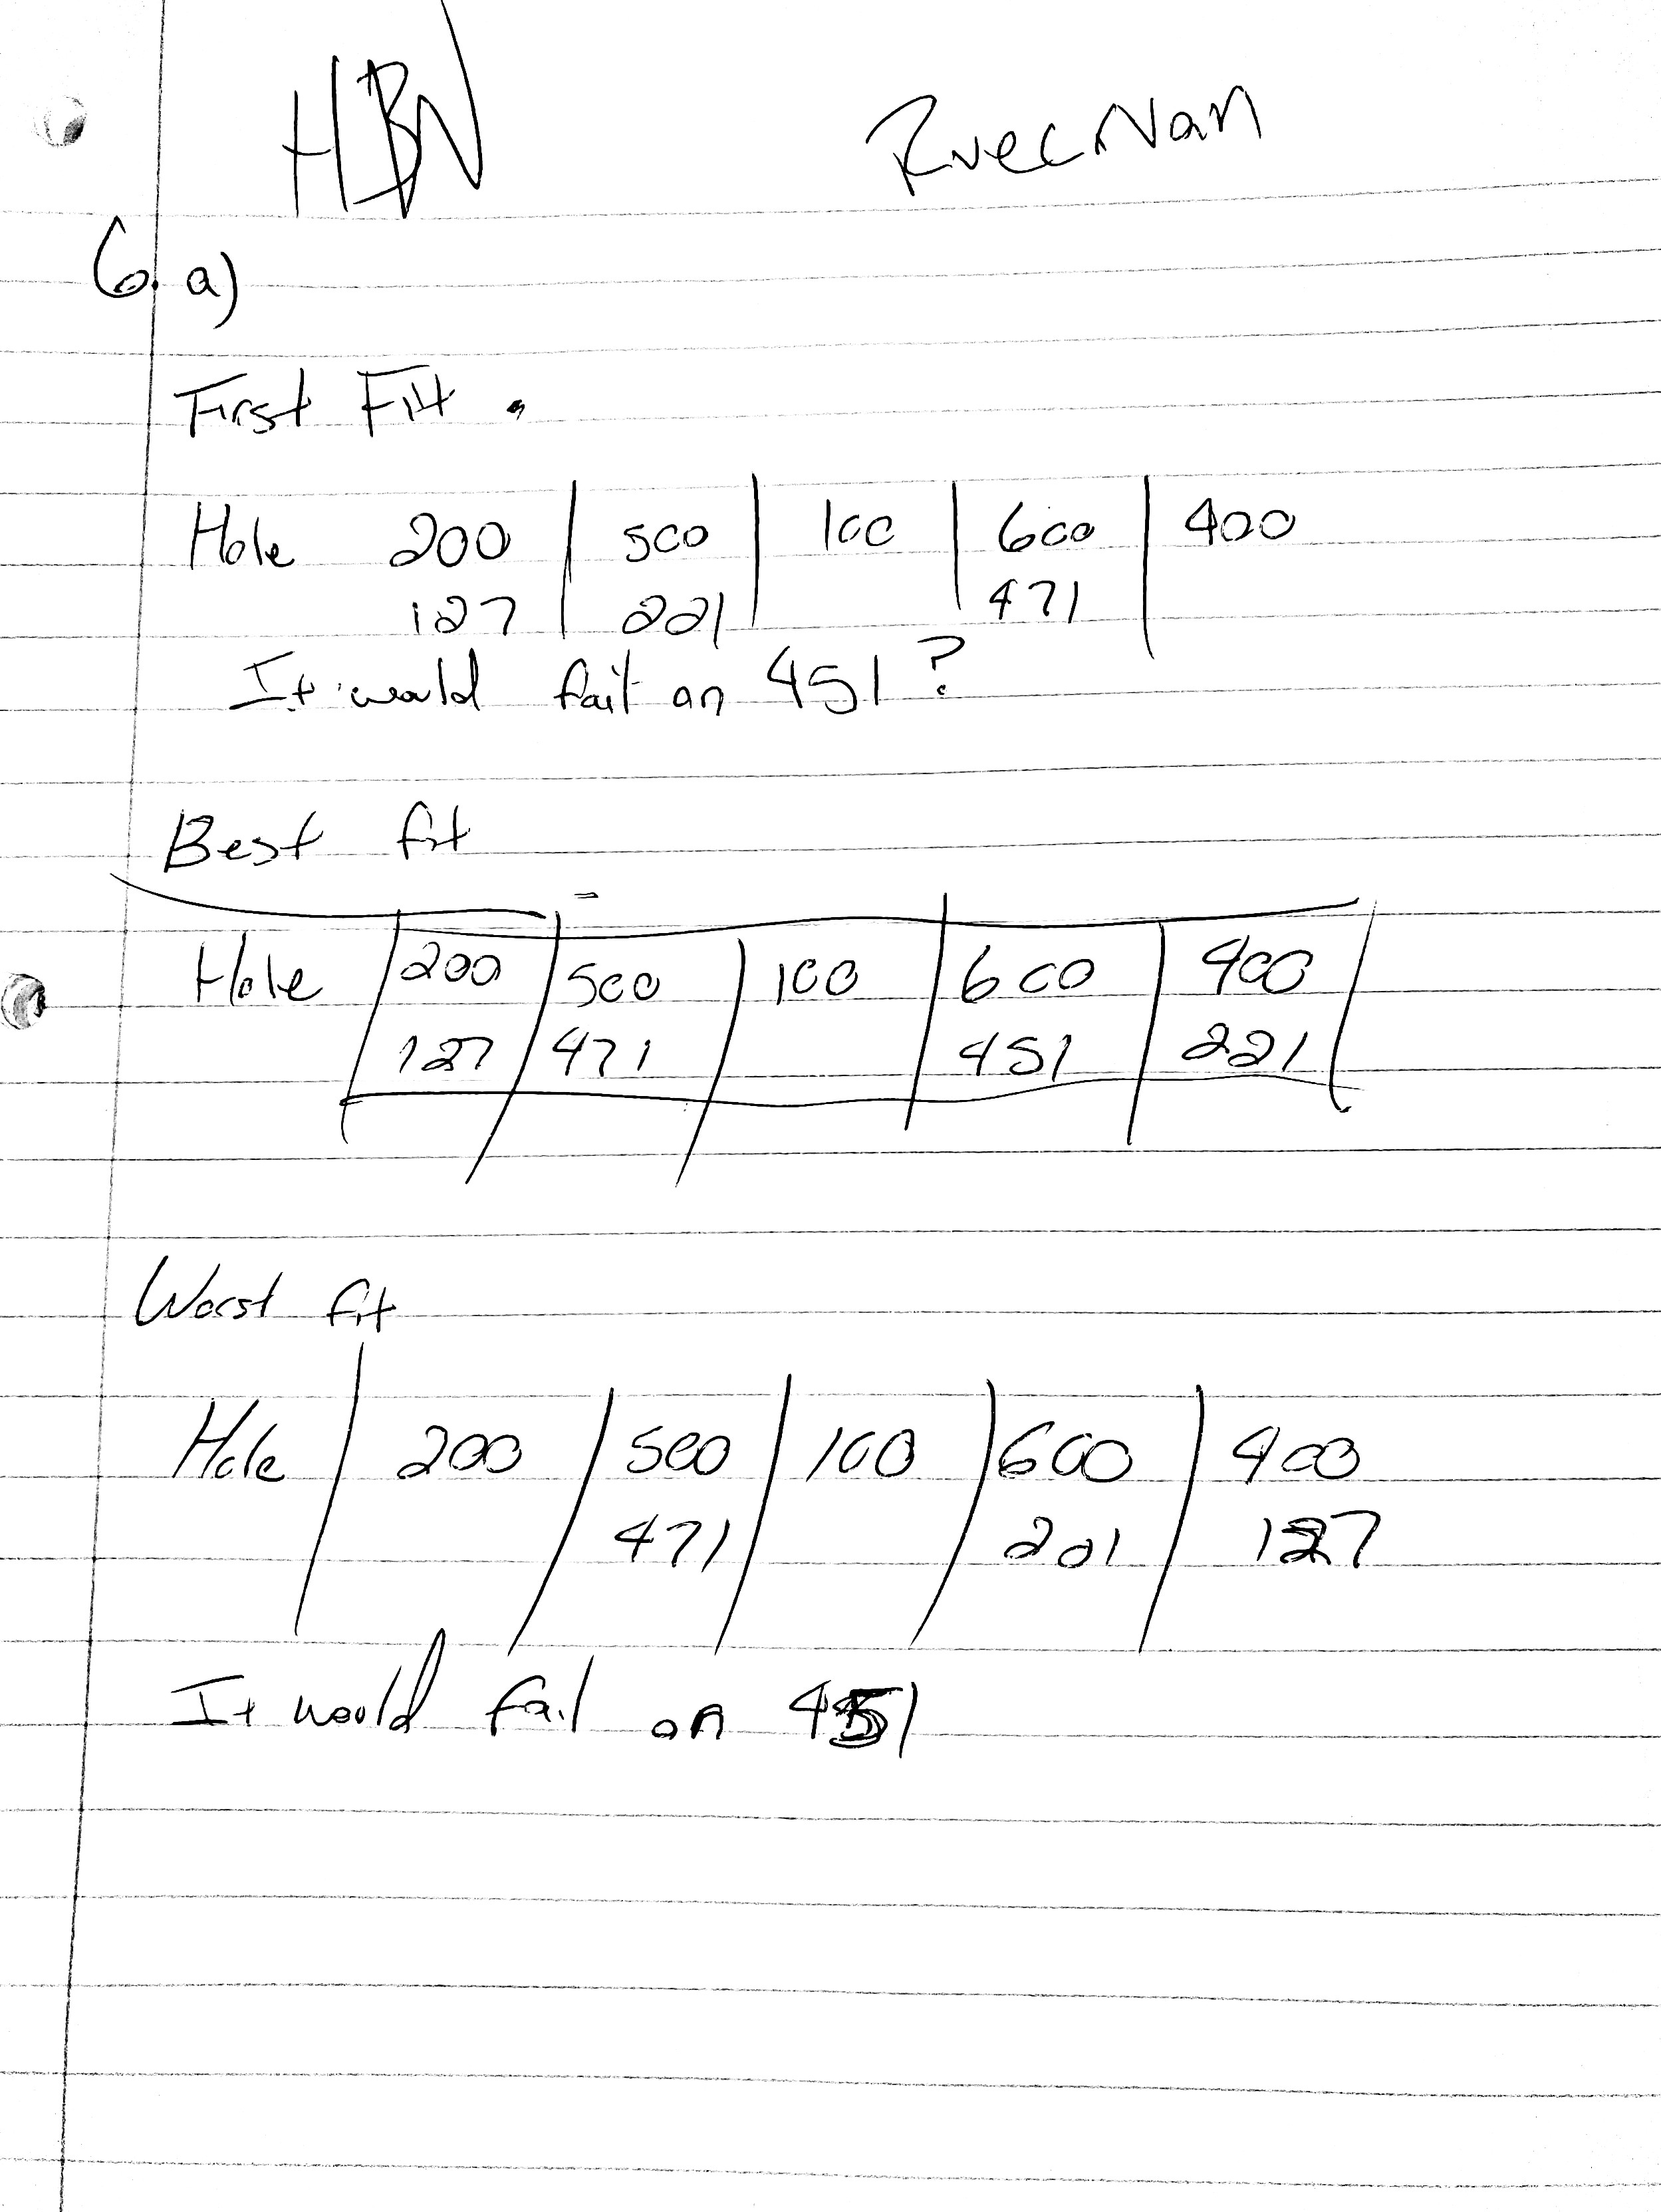 HBN
6. a)
First Fit.
Hole 200 | 500 | 100 | 600 | 400
127 | 221 | 471
It would fail on 451?
Best fit
Hole | 200 | 500 | 100 | 600 | 400
127 | 471 | | 451 | 221
Worst fit
Hole | 200 | 500 | 100 | 600 | 400
471 | | 221 | 127
It would fail on 451